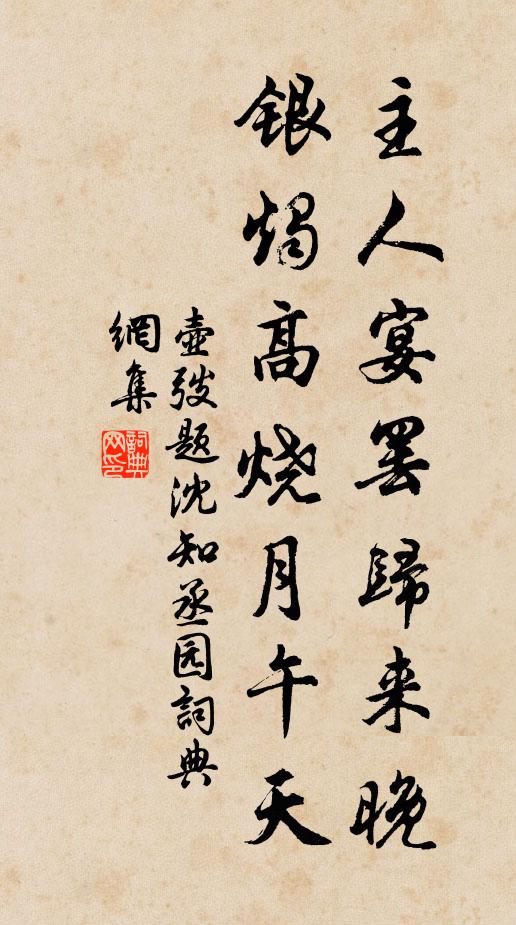 主人宴罢歸来晚
银烛高烧月午天
壶弢题沈知丞园詞典
網集
詞典网印